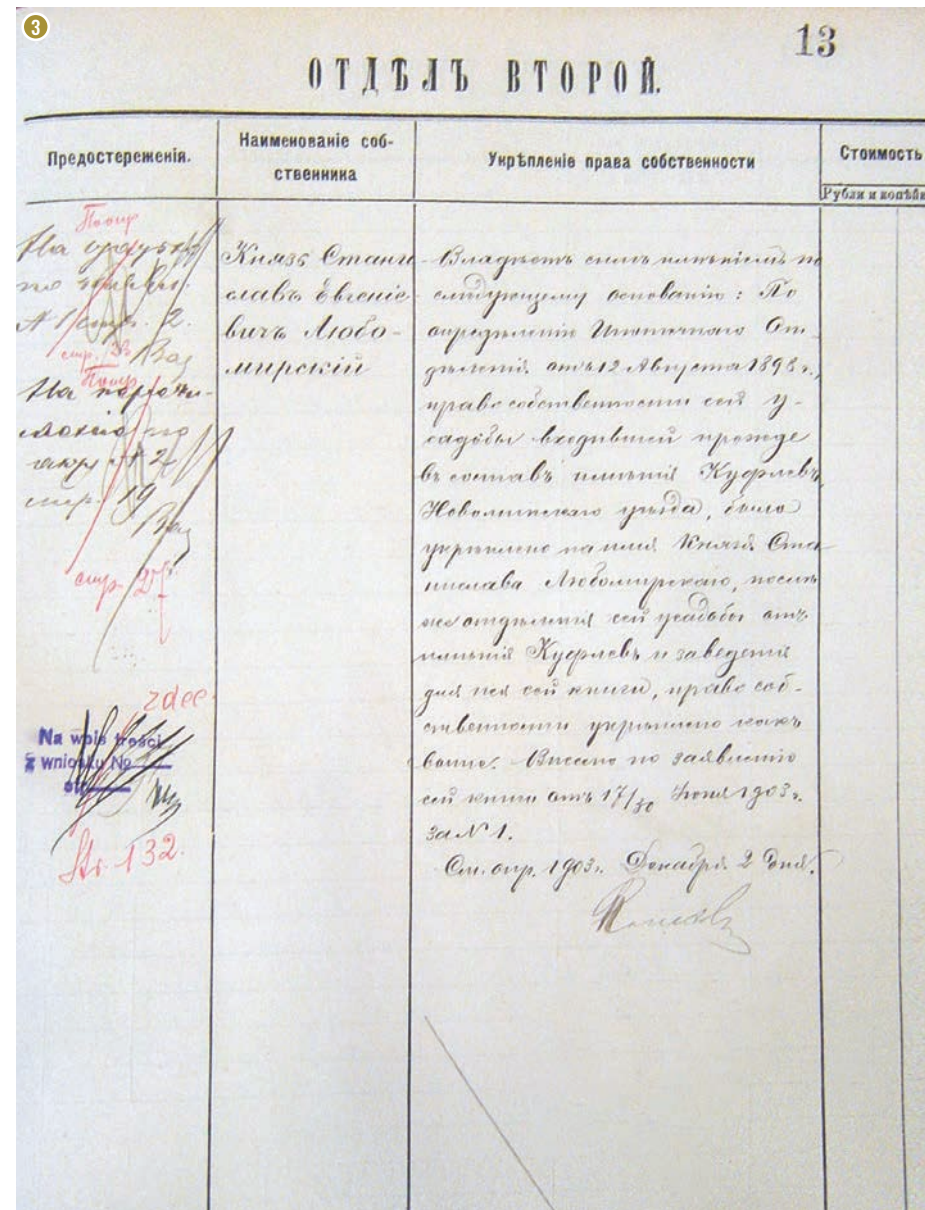 3
13
ОТДѢЛЪ ВТОРОЙ.
Предостереженія.
Наименованіе соб-
ственника
Укрѣпленіе права собственности
Стоимость
Рубли и копѣйк
На
по
№ 1 стр. 2.
На
по
№ 2
стр. 19
стр. 25
zdec
Na wpis treści
z wniosku No
Str. 132.
Князь Стани-
славъ Евгеніе-
вичъ Любо-
мирскій
Владѣетъ симъ имѣніемъ по
слѣдующему основанію: По
опредѣленію Ипотечнаго От
дѣленія отъ 12 Августа 1898 г.,
право собственности сей у-
садьбы входившей прежде
въ составъ имѣнія Куфлевъ
Новоминскаго уѣзда, было
укрѣплено на имя Князя Ста
нислава Любомирскаго, послѣ
же отдѣленія сей усадьбы отъ
имѣнія Куфлевъ и заведенія
для нея сей книги, право соб-
ственности укрѣплено какъ
выше. Внесено по заявленію
сей книги отъ 17/30 Іюня 1903 г.
за № 1.
См. опр. 1903 г. Декабря 2 дня.